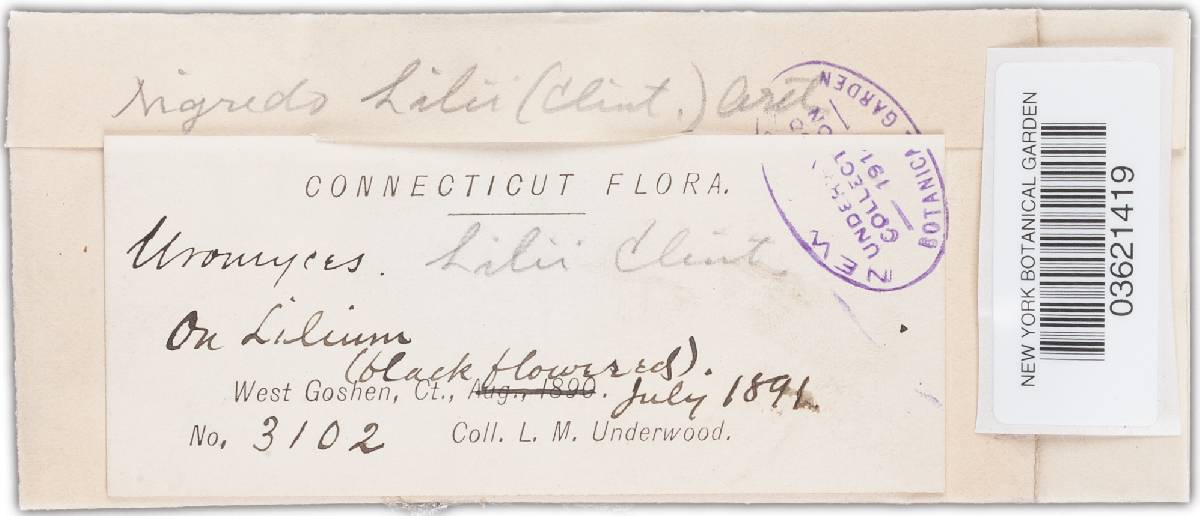 Nigredo Lilii (Clint.) Arth
CONNECTICUT FLORA.
Uromyces. Lilii Clint.
On Lilium
(black flowered).
West Goshen, Ct., Aug., 1890. July 1891.
No. 3102 Coll. L. M. Underwood.
NEW BOTANICAL GARDEN
COLLECT
NEW YORK BOTANICAL GARDEN
03621419